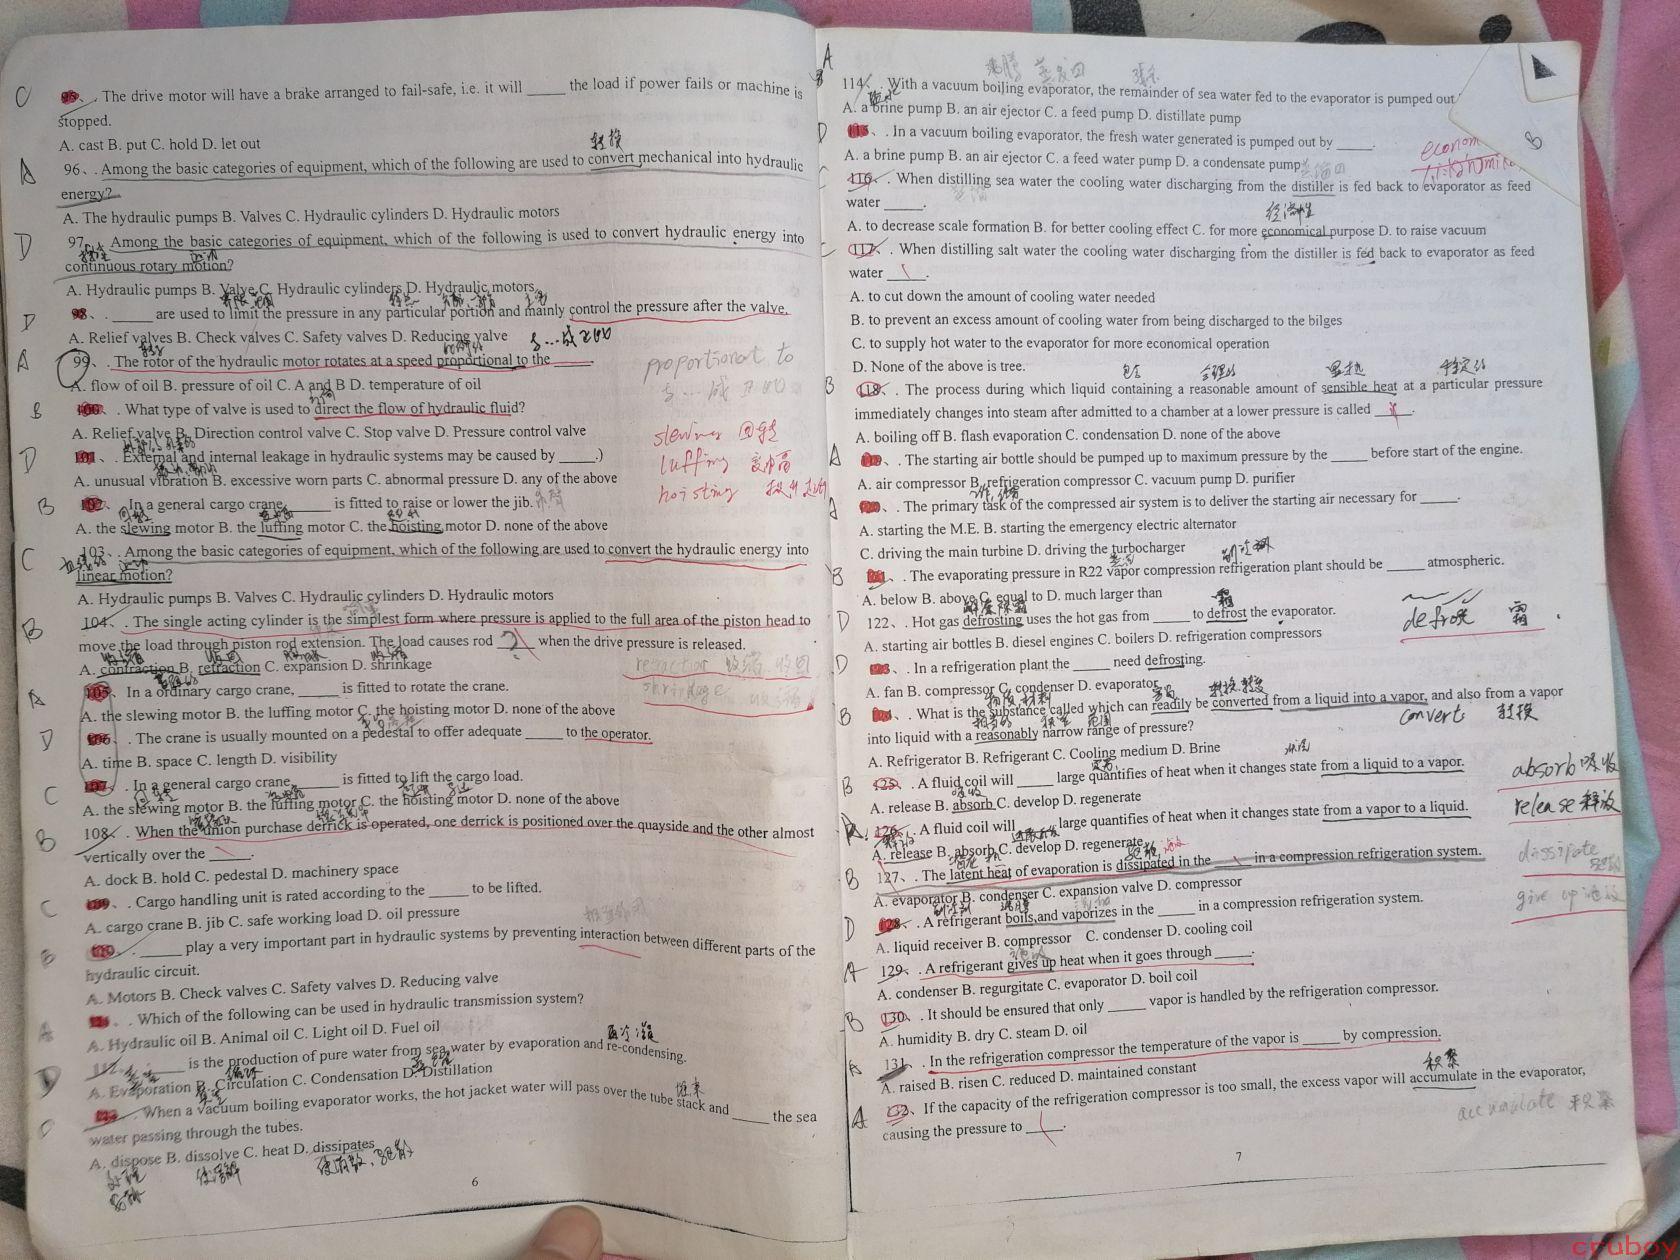 C 95、. The drive motor will have a brake arranged to fail-safe, i.e. it will _____ the load if power fails or machine is
stopped.
A. cast B. put C. hold D. let out
转换
A 96、. Among the basic categories of equipment, which of the following are used to convert mechanical into hydraulic
energy?
A. The hydraulic pumps B. Valves C. Hydraulic cylinders D. Hydraulic motors
D 97、. Among the basic categories of equipment, which of the following is used to convert hydraulic energy into
continuous rotary motion?
A. Hydraulic pumps B. Valve C. Hydraulic cylinders D. Hydraulic motors
D 98、. _____ are used to limit the pressure in any particular portion and mainly control the pressure after the valve.
A. Relief valves B. Check valves C. Safety valves D. Reducing valve
A 99、. The rotor of the hydraulic motor rotates at a speed proportional to the _____.
A. flow of oil B. pressure of oil C. A and B D. temperature of oil
proportional to
B 100、. What type of valve is used to direct the flow of hydraulic fluid?
A. Relief valve B. Direction control valve C. Stop valve D. Pressure control valve
slewing 回转
D 101、. External and internal leakage in hydraulic systems may be caused by _____.)
luffing 变幅
A. unusual vibration B. excessive worn parts C. abnormal pressure D. any of the above
hoisting
B 102、. In a general cargo crane, _____ is fitted to raise or lower the jib.
A. the slewing motor B. the luffing motor C. the hoisting motor D. none of the above
C 103、. Among the basic categories of equipment, which of the following are used to convert the hydraulic energy into
linear motion?
A. Hydraulic pumps B. Valves C. Hydraulic cylinders D. Hydraulic motors
B 104、. The single acting cylinder is the simplest form where pressure is applied to the full area of the piston head to
move the load through piston rod extension. The load causes rod _____ when the drive pressure is released.
A. contraction B. refraction C. expansion D. shrinkage
retraction 收缩 收回
shrinkage 收缩
A 105、. In a ordinary cargo crane, _____ is fitted to rotate the crane.
A. the slewing motor B. the luffing motor C. the hoisting motor D. none of the above
D 106、. The crane is usually mounted on a pedestal to offer adequate _____ to the operator.
A. time B. space C. length D. visibility
C 107、. In a general cargo crane, _____ is fitted to lift the cargo load.
A. the slewing motor B. the luffing motor C. the hoisting motor D. none of the above
B 108、. When the union purchase derrick is operated, one derrick is positioned over the quayside and the other almost
vertically over the _____.
A. dock B. hold C. pedestal D. machinery space
C 109、. Cargo handling unit is rated according to the _____ to be lifted.
A. cargo crane B. jib C. safe working load D. oil pressure
B 110、. _____ play a very important part in hydraulic systems by preventing interaction between different parts of the
hydraulic circuit.
A. Motors B. Check valves C. Safety valves D. Reducing valve
A 111、. Which of the following can be used in hydraulic transmission system?
A. Hydraulic oil B. Animal oil C. Light oil D. Fuel oil
再冷凝
D 112、. _____ is the production of pure water from sea water by evaporation and re-condensing.
A. Evaporation B. Circulation C. Condensation D. Distillation
C 113、. When a vacuum boiling evaporator works, the hot jacket water will pass over the tube stack and _____ the sea
water passing through the tubes.
A. dispose B. dissolve C. heat D. dissipates
处理 使溶解
6
A
沸腾 蒸发
B 114、. With a vacuum boiling evaporator, the remainder of sea water fed to the evaporator is pumped out
A. a brine pump B. an air ejector C. a feed pump D. distillate pump
D 115、. In a vacuum boiling evaporator, the fresh water generated is pumped out by _____.
A. a brine pump B. an air ejector C. a feed water pump D. a condensate pump
econom
B
C 116、. When distilling sea water the cooling water discharging from the distiller is fed back to evaporator as feed
water _____.
经济性
A. to decrease scale formation B. for better cooling effect C. for more economical purpose D. to raise vacuum
C 117、. When distilling salt water the cooling water discharging from the distiller is fed back to evaporator as feed
water _____.
A. to cut down the amount of cooling water needed
B. to prevent an excess amount of cooling water from being discharged to the bilges
C. to supply hot water to the evaporator for more economical operation
D. None of the above is tree.
包含 合理的 显热 特定的
B 118、. The process during which liquid containing a reasonable amount of sensible heat at a particular pressure
immediately changes into steam after admitted to a chamber at a lower pressure is called _____.
A. boiling off B. flash evaporation C. condensation D. none of the above
A 119、. The starting air bottle should be pumped up to maximum pressure by the _____ before start of the engine.
A. air compressor B. refrigeration compressor C. vacuum pump D. purifier
A 120、. The primary task of the compressed air system is to deliver the starting air necessary for _____.
A. starting the M.E. B. starting the emergency electric alternator
C. driving the main turbine D. driving the turbocharger
B 121、. The evaporating pressure in R22 vapor compression refrigeration plant should be _____ atmospheric.
A. below B. above C. equal to D. much larger than
D 122、. Hot gas defrosting uses the hot gas from _____ to defrost the evaporator.
defrost 霜
A. starting air bottles B. diesel engines C. boilers D. refrigeration compressors
D 123、. In a refrigeration plant the _____ need defrosting.
A. fan B. compressor C. condenser D. evaporator
B 124、. What is the substance called which can readily be converted from a liquid into a vapor, and also from a vapor
convert 转换
into liquid with a reasonably narrow range of pressure?
A. Refrigerator B. Refrigerant C. Cooling medium D. Brine
B 125、. A fluid coil will _____ large quantifies of heat when it changes state from a liquid to a vapor.
absorb 吸收
A. release B. absorb C. develop D. regenerate
release 释放
A 126、. A fluid coil will _____ large quantifies of heat when it changes state from a vapor to a liquid.
A. release B. absorb C. develop D. regenerate
dissipate
B 127、. The latent heat of evaporation is dissipated in the _____ in a compression refrigeration system.
A. evaporator B. condenser C. expansion valve D. compressor
give up
D 128、. A refrigerant boils and vaporizes in the _____ in a compression refrigeration system.
A. liquid receiver B. compressor C. condenser D. cooling coil
A 129、. A refrigerant gives up heat when it goes through _____.
A. condenser B. regurgitate C. evaporator D. boil coil
B 130、. It should be ensured that only _____ vapor is handled by the refrigeration compressor.
A. humidity B. dry C. steam D. oil
A 131、. In the refrigeration compressor the temperature of the vapor is _____ by compression.
A. raised B. risen C. reduced D. maintained constant
积累
A 132、If the capacity of the refrigeration compressor is too small, the excess vapor will accumulate in the evaporator,
causing the pressure to _____.
accumulate 积累
7
cruboy